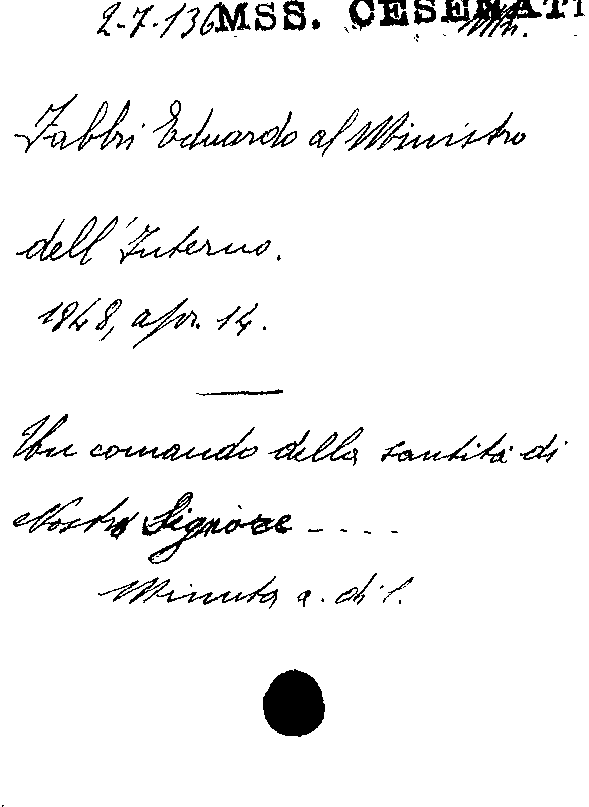 2-7-136 MSS. CESENATI
Fabbri Eduardo al Ministro
dell'Interno.
1848, apr. 14.
Un comando della santità di
Nostro Signore ----
Minuta a. di f.